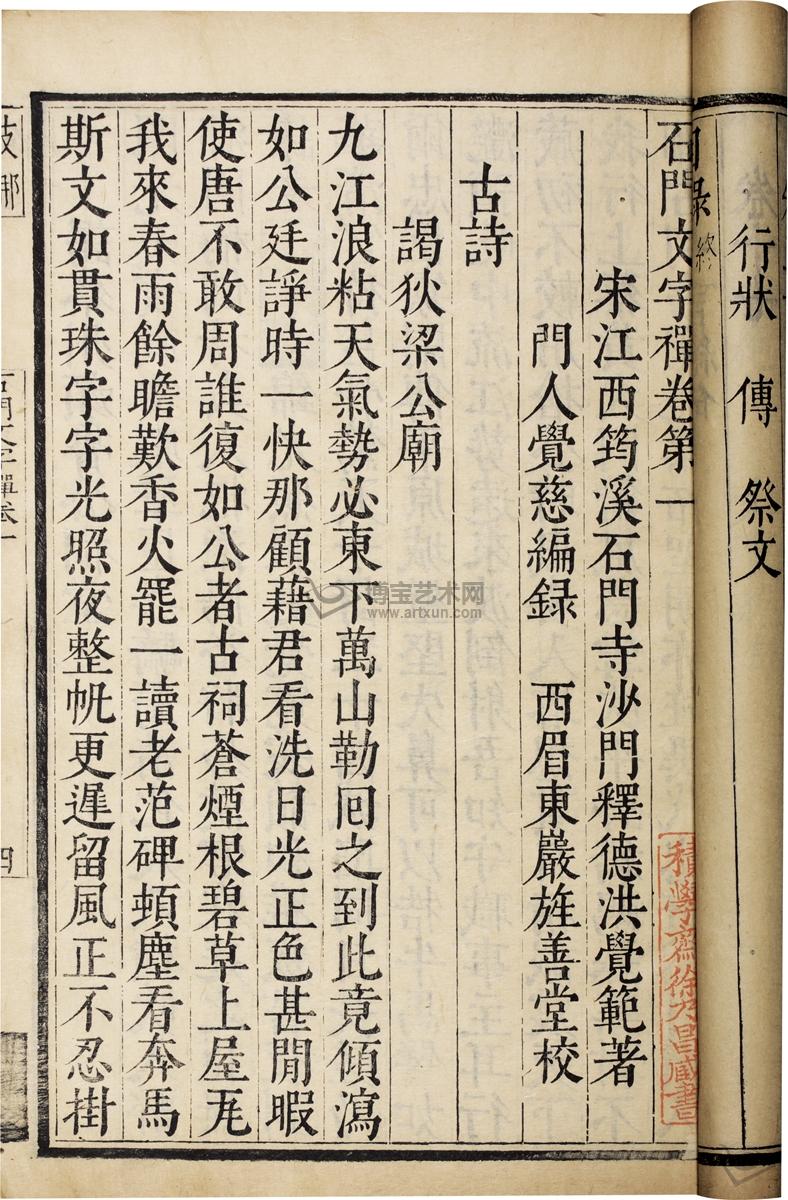 行狀　傳　祭文
目錄終
石門文字禪卷第一
宋江西筠溪石門寺沙門釋德洪覺範著
門人覺慈編錄　西眉東巖旌善堂校
古詩
謁狄梁公廟
九江浪粘天氣勢必東下萬山勒囘之到此竟傾瀉
如公廷諍時一快那顧藉君看洗日光正色甚閒暇
使唐不敢周誰復如公者古祠蒼煙根碧草上屋瓦
我來春雨餘瞻歎香火罷一讀老范碑頓塵看奔馬
斯文如貫珠字字光照夜整帆更遲留風正不忍掛
積學齋徐乃昌藏書
石門文字禪卷一
四
博宝艺术网
www.artxun.com